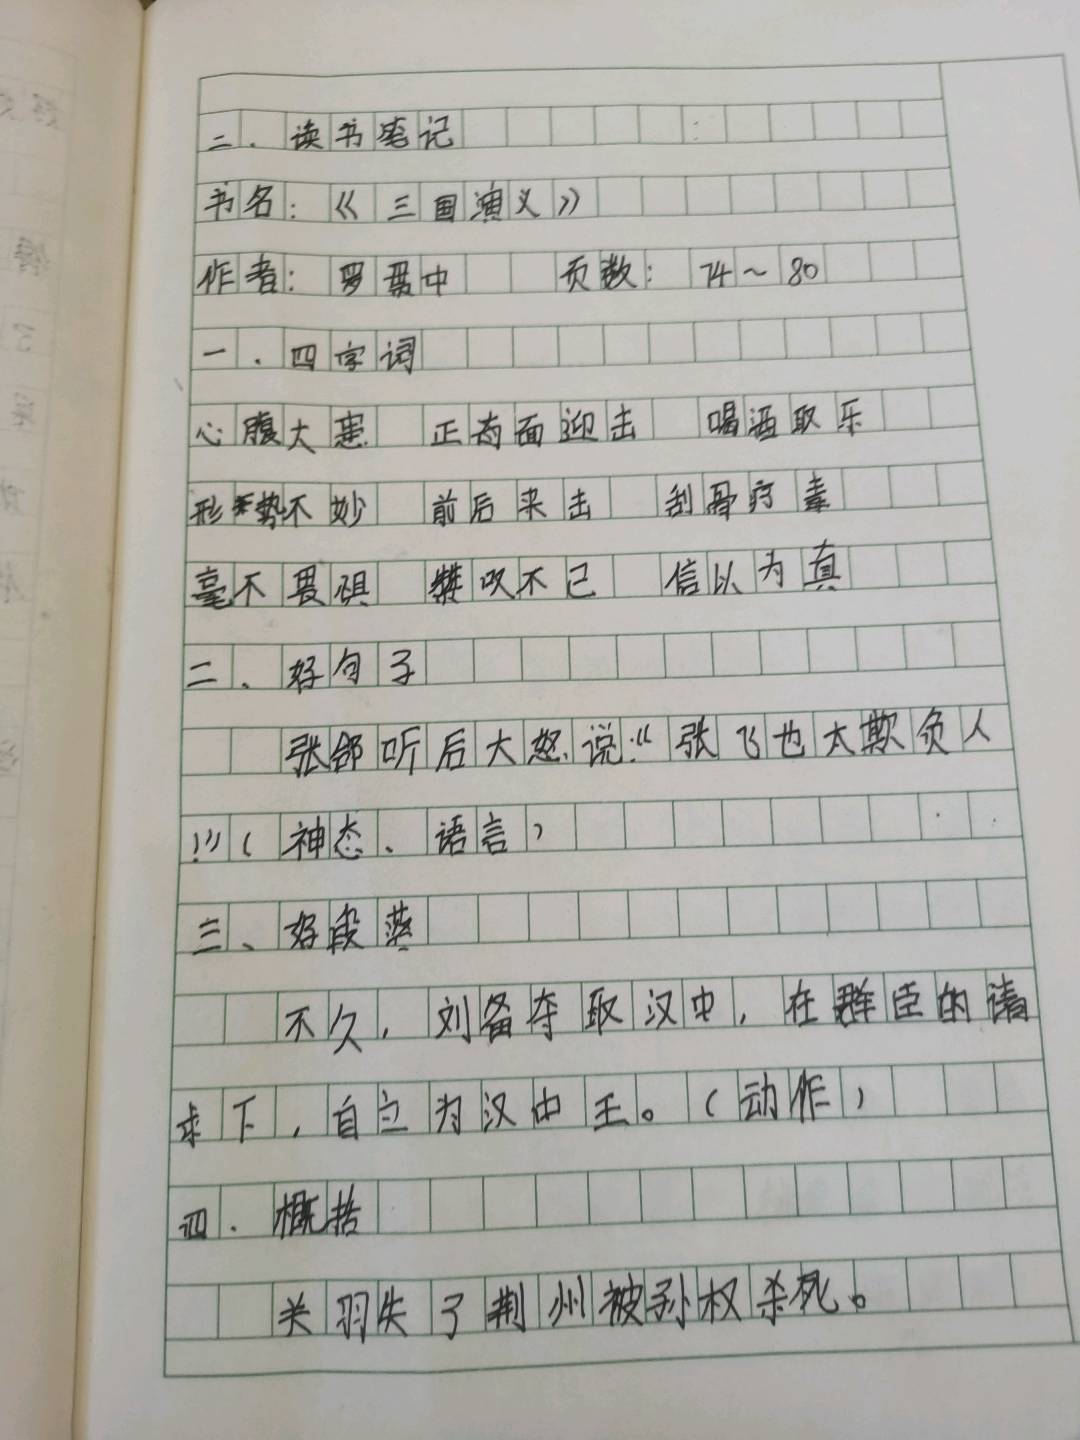 二.读书笔记
书名:《三国演义》
作者:罗贯中 页数:74～80
一.四字词
心腹大患 正面迎击 喝酒取乐
形势不妙 前后来击 刮骨疗毒
毫不畏惧 叹不已 信以为真
二、好句子
张郃听后大怒说:“张飞也太欺负人
!”(神态、语言)
三、好段落
不久,刘备夺取汉中,在群臣的请
求下,自立为汉中王。(动作)
四.概括
关羽失了荆州被孙权杀死。